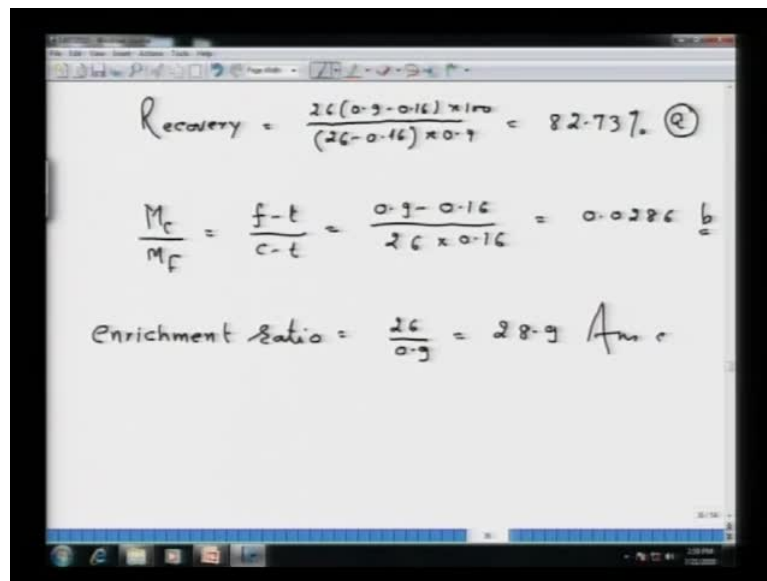 Recovery = 26(0.9-0.16) x 100 / (26-0.16) x 0.9 = 82.73%. a
Mc / MF = f-t / c-t = 0.9-0.16 / 26 x 0.16 = 0.0286 b
enrichment ratio = 26 / 0.9 = 28.9 Ans c